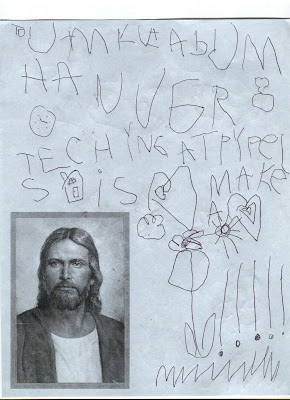 TO UMKLAbUM
HA NVER
TECHING ATPYPEl
S iS MAKE
A